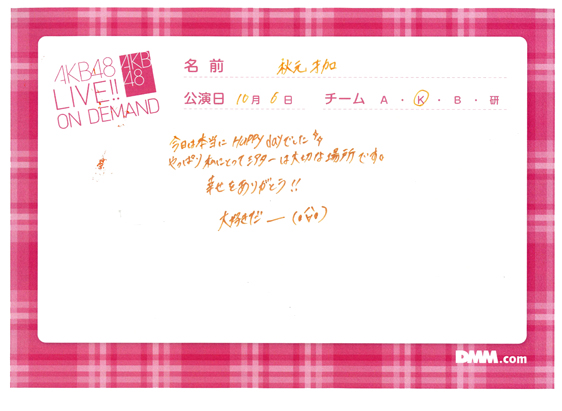 AKB48
LIVE!!
ON DEMAND
AKB
48
名前 秋元才加
公演日 10月6日 チーム A・K・B・研
今日は本当にHappy dayでした
やっぱり私にとってシアターは大切な場所です。
幸せをありがとう!!
大好きだー
DMM.com